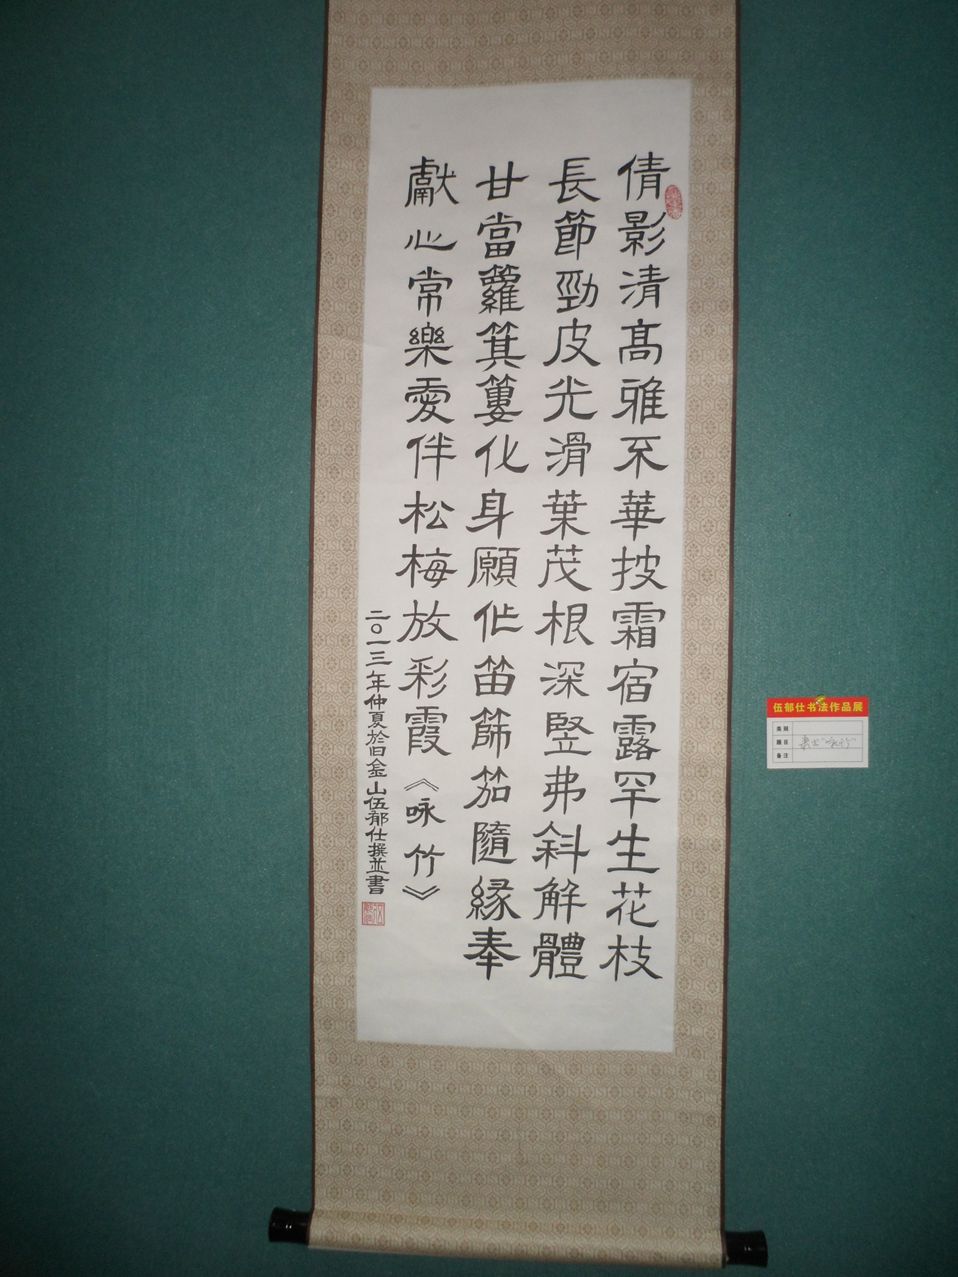 倩影清高雅不華披霜宿露罕生花枝
長節勁皮光滑葉茂根深竪弗斜解體
甘當籮箕簍化身願作笛篩笳隨緣奉
獻心常樂愛伴松梅放彩霞《咏竹》
二〇一三年仲夏於旧金山伍郁仕撰並書
伍郁仕书法作品展
类别
题目 隶书"咏竹"
备注